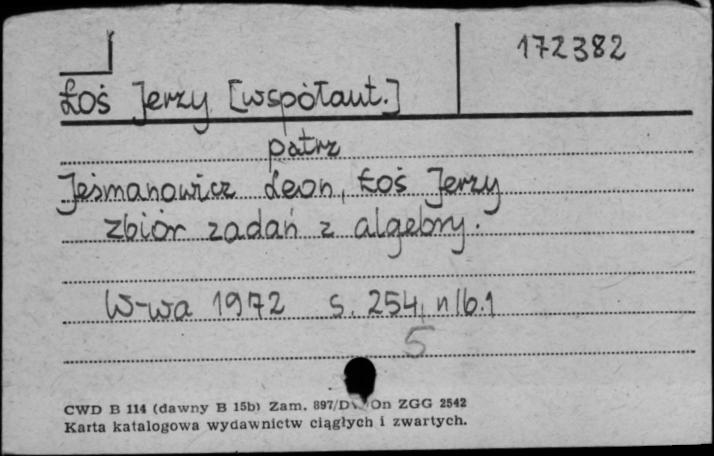 172382
Łoś Jerzy [współaut.]
patrz
Jeśmanowicz Leon, Łoś Jerzy
zbiór zadań z algebry.
W-wa 1972 s. 254, nlb.1
5
CWD B 114 (dawny B 15b) Zam. 897/D On ZGG 2542
Karta katalogowa wydawnictw ciągłych i zwartych.